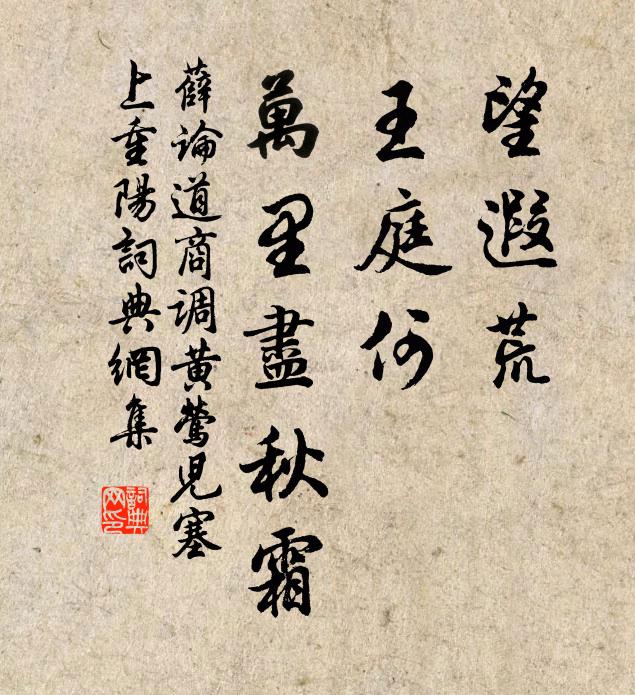 望遐荒
王庭何
萬里盡秋霜
薛論道商調黃鶯兒塞
上重陽詞典網集
詞典
网印